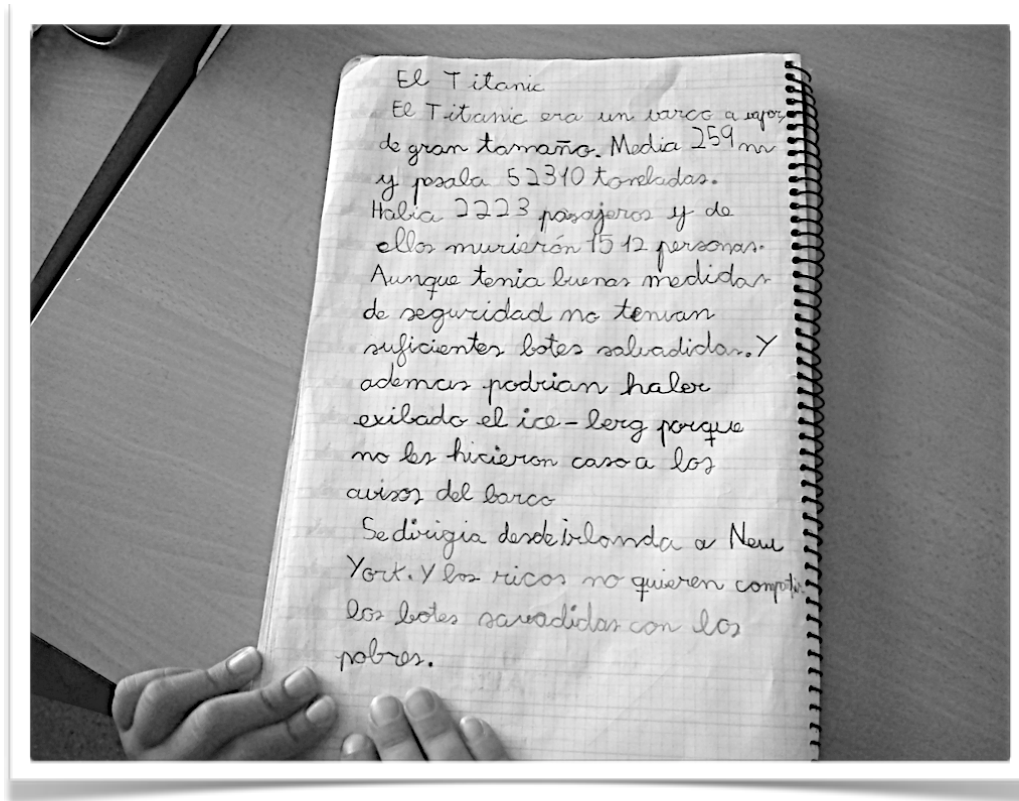 El Titanic
El Titanic era un barco a vapor
de gran tamaño. Media 259 m
y pesaba 52310 toneladas.
Habia 2223 pasajeros y de
ellos murierón 1512 personas.
Aunque tenia buenas medidas
de seguridad no tenian
suficientes botes salvadidas. Y
ademas podrian haber
exibado el ice-berg porque
no les hicieron caso a los
avisos del barco
Se dirigia desde irlanda a New
York. Y los ricos no quieren compartir
los botes savadidas con los
pobres.